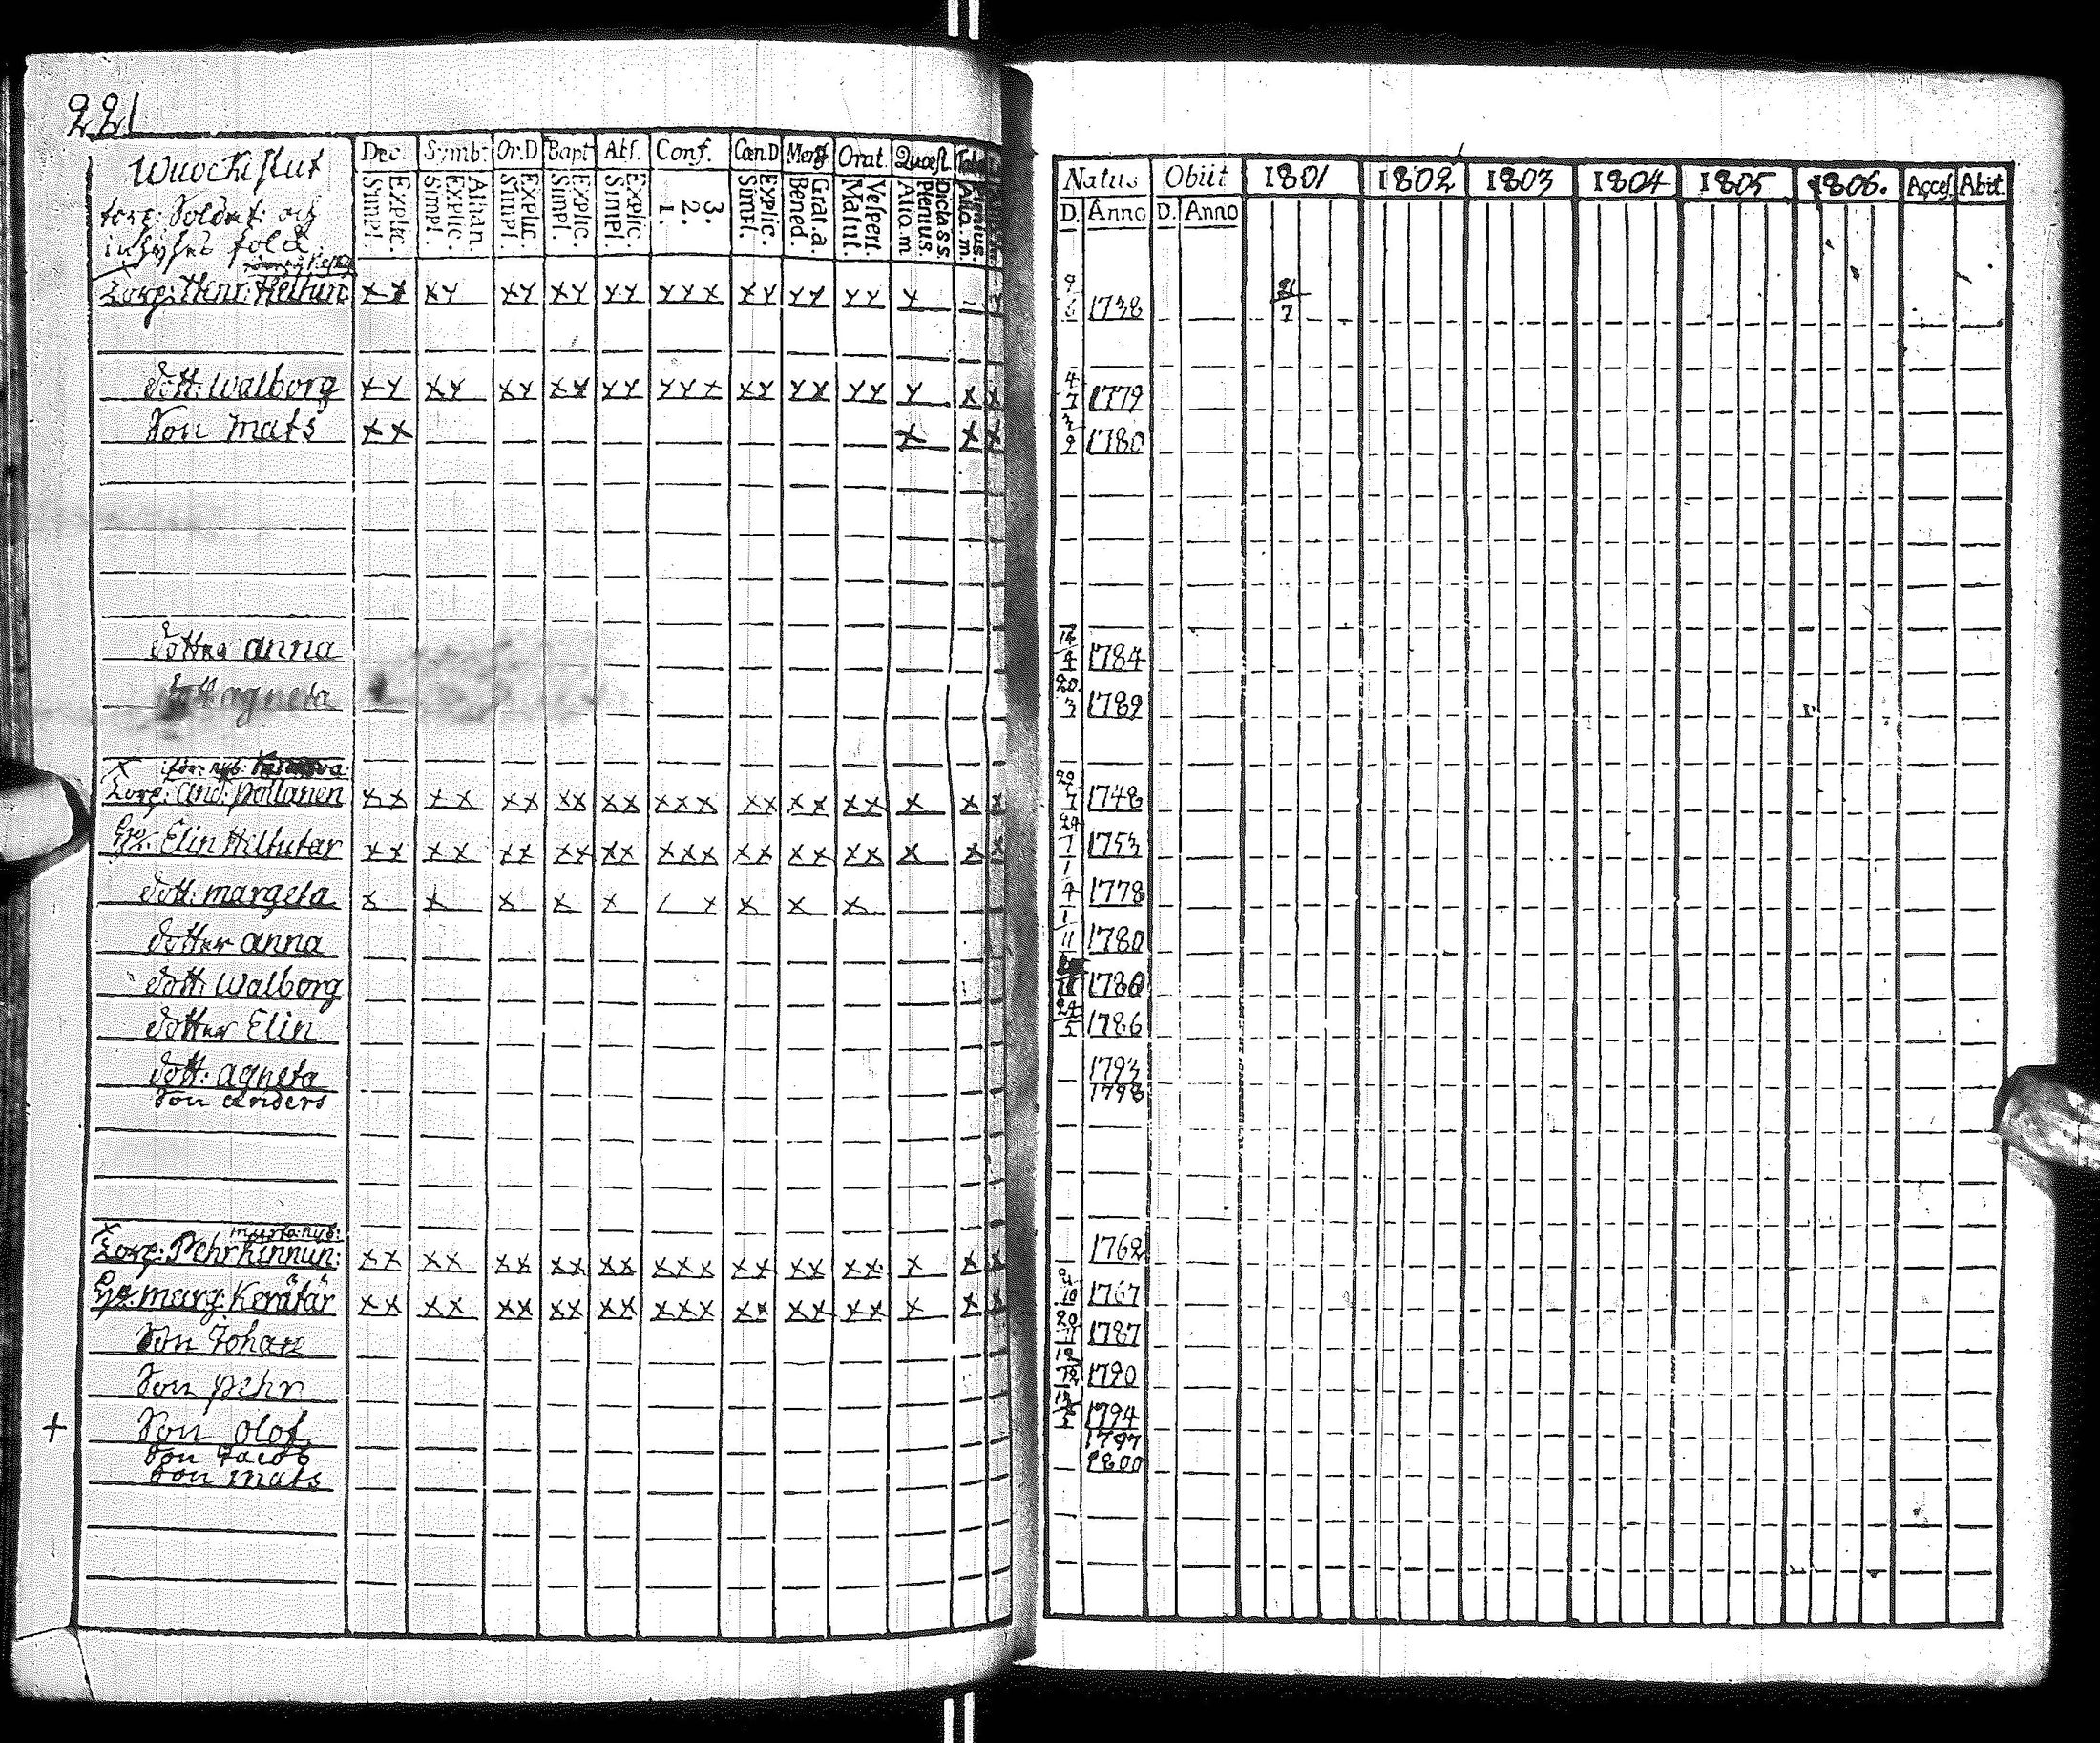 221
Wuockislut
torp: Soldat: och
inhyses folck
Dec. Symb: Or.D Bapt Abs. Conf. Cœn.D Mens. Orat. Quæst.
Natus Obiit 1801 1802 1803 1804 1805 1806. Acces. Abit.
Explic. Simpl. Athan. Explic. Simpl. Explic. Simpl. Explic. Simpl. Explic. Simpl. 3. 2. 1. Explic. Simpl. Grat. a. Bened. Vespert. Matut. Dicta.s.s. Plenius. Alio.m
D. Anno D. Anno
x
Torp: Henr: Heltun: xx xy xy xy yy yyx xy yy yy y 9/6 1738 21/7
dott: Walborg xy xy xy xx yy yyx xy yx yy y x x 4/7 1779
Son Mats xx x x x 3/9 1780
dotter anna 14/4 1784
dott agneta 20/3 1789
x för: nyb:
Torp: And: Pollanen xx xx xx xx xx xxx xx xx xx x x x 29/7 1748
Hu: Elin Hiltutar xx xx xx xx xx xxx xx xx xx x x x 24/7 1753
dott: margeta x x x x x / x x x x 1/4 1778
dotter anna 1/11 1780
dott: Walborg 1780
dotter Elin 24/5 1786
dott: agneta 1793
Son Anders 1798
x nyb:
Torp: Pehr Kinnun: xx xx xx xx xx xxx xx xx xx x x x 1762
Hu: marg: Kerätär xx xx xx xx xx xxx xx xx xx x x x 1767
Son Johan 20/11 1787
Son Pehr 19/12 1790
+ Son Olof 1794
Son Jacob 1797
Son Mats 1800